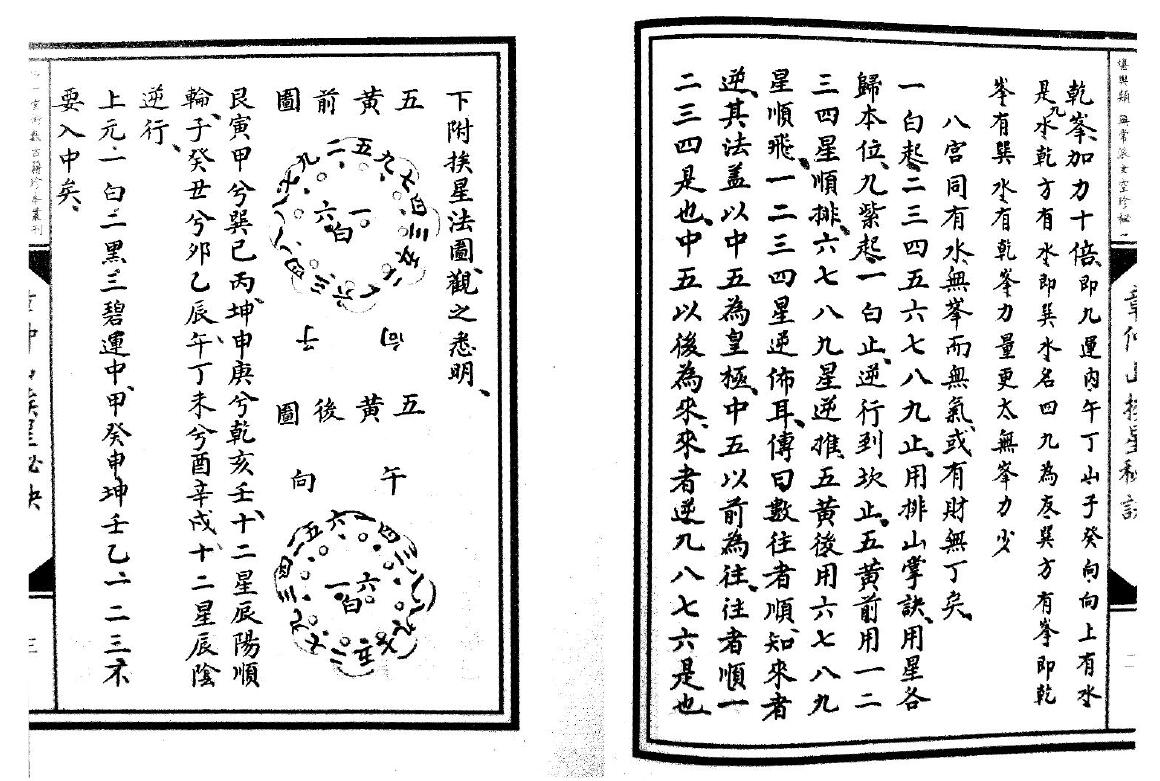 堪輿類 無常派玄空珍秘
章仲山挨星秘訣
二
乾峯加力十倍、即九運內午丁山子癸向向上有水
是九水乾方有水即巽水名四九為友巽方有峯即乾
峯有巽水有乾峯力量更太無峯力少
八宮同有水無峯而無氣或有財無丁矣、
一白起二三四五六七八九止、用排山掌訣、用星各
歸本位、九紫起一白止、逆行到坎止、五黃前用一二
三四星順排、六七八九星逆推、五黃後用六七八九
星順飛、一二三四星逆佈耳、傳曰數往者順、知來者
逆、其法蓋以中五為皇極、中五以前為往、往者順一
二三四是也、中五以後為來、來者逆九八七六是也、
下附挨星法圖觀之悉明、
五黃前圖
一白
六
向
子
五黃後圖
午
向
六
一白
艮寅甲兮巽巳丙、坤申庚兮乾亥壬、十二星辰陽順
輪、子癸丑兮卯乙辰、午丁未兮酉辛戌、十二星辰陰
逆行、
上元一白二黑三碧運中、甲癸申坤壬乙、一二三不
要入中矣、
三